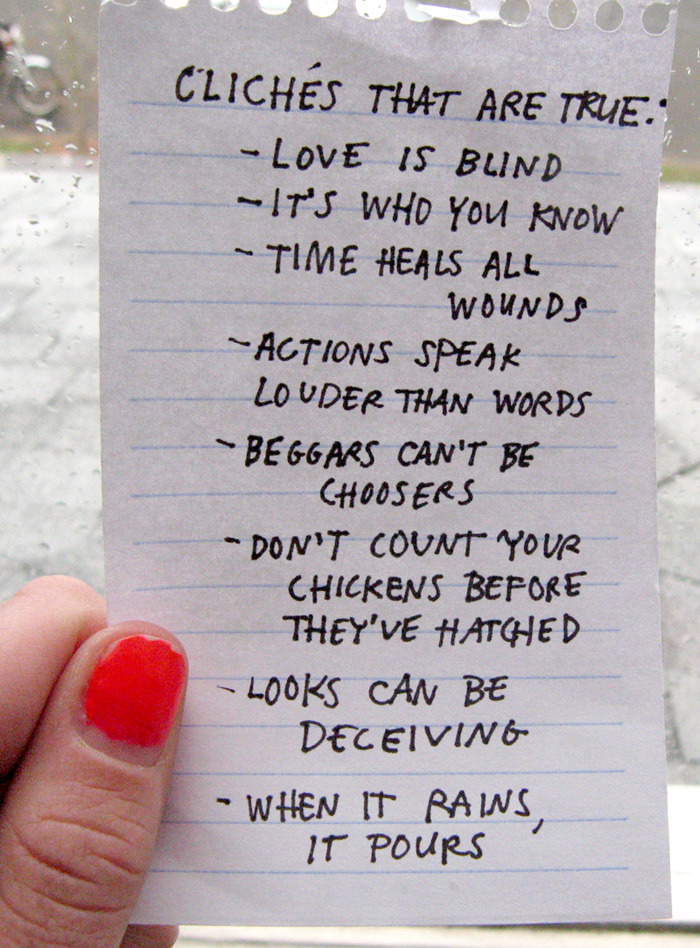 CLICHÉS THAT ARE TRUE:
- LOVE IS BLIND
- IT'S WHO YOU KNOW
- TIME HEALS ALL
WOUNDS
- ACTIONS SPEAK
LOUDER THAN WORDS
- BEGGARS CAN'T BE
CHOOSERS
- DON'T COUNT YOUR
CHICKENS BEFORE
THEY'VE HATCHED
- LOOKS CAN BE
DECEIVING
- WHEN IT RAINS,
IT POURS